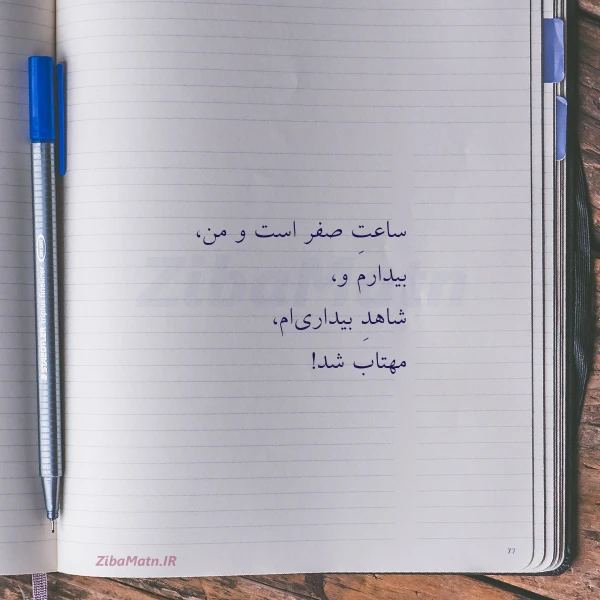 ساعتِ صفر است و من،
بیدارم و،
شاهدِ بیداری‌ام،
مهتاب شد!
ZibaMatn
77
ZibaMatn.IR
STAEDTLER triplus fineliner